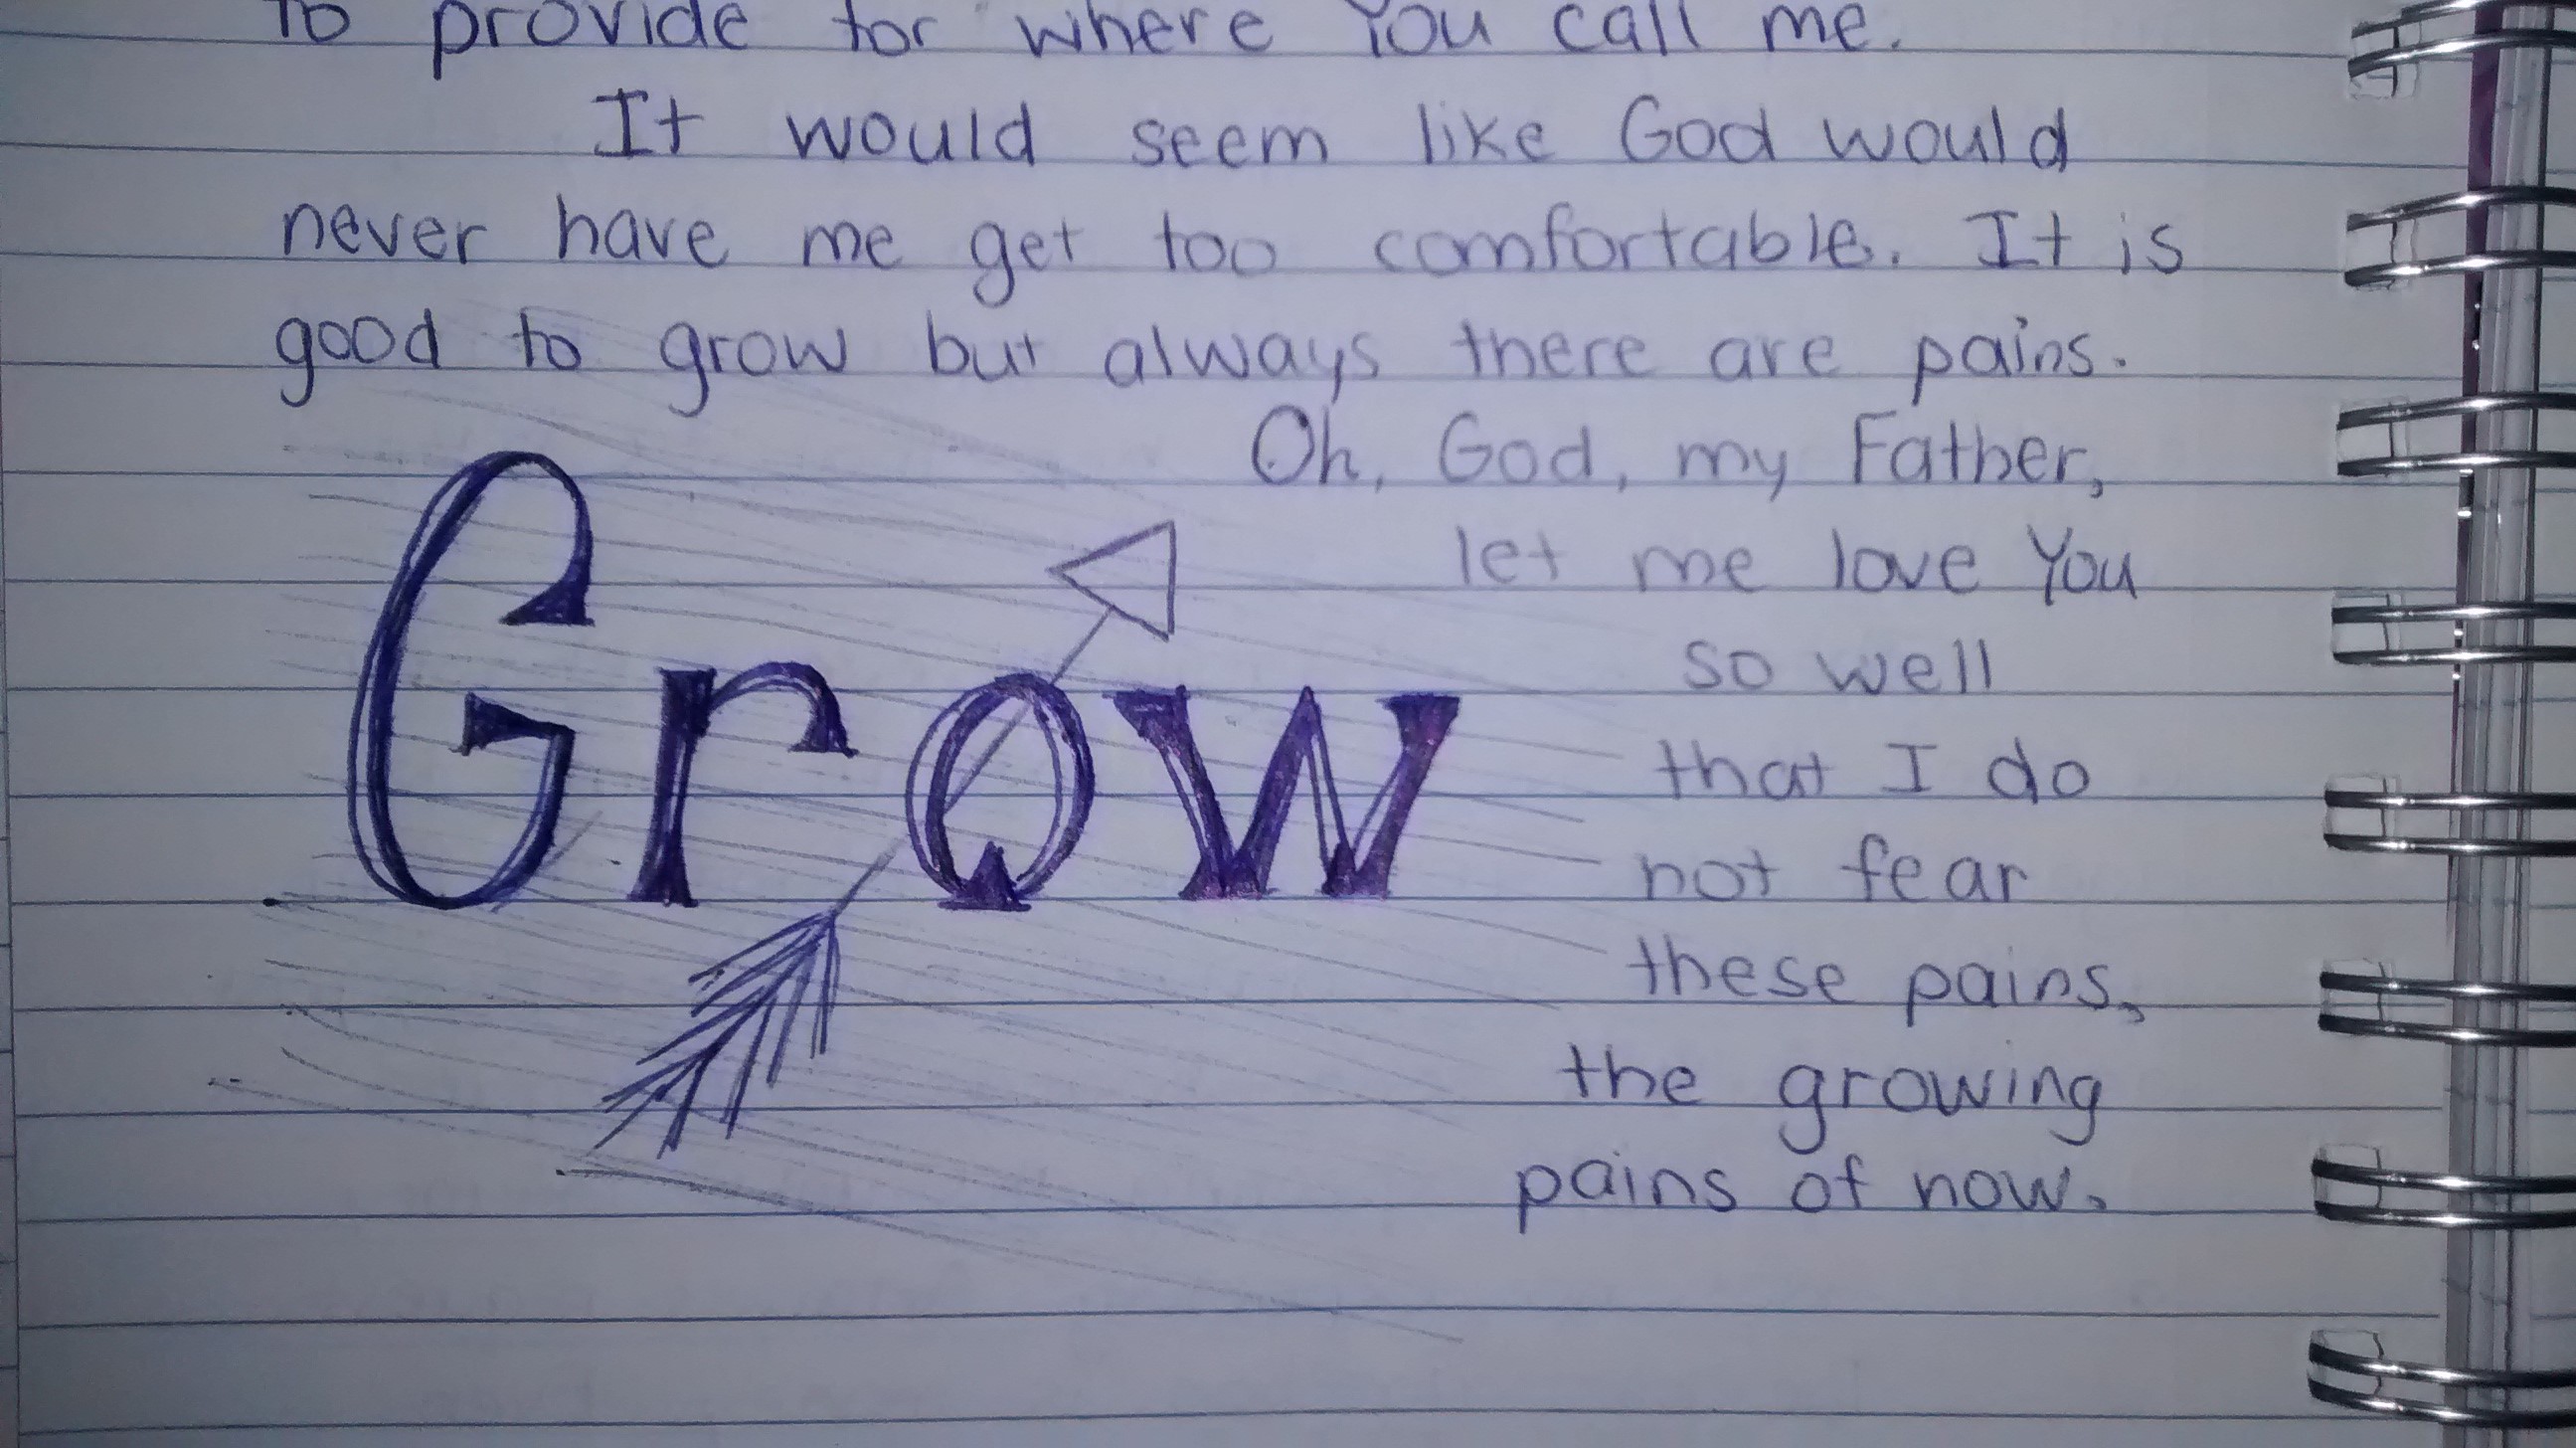 to provide for where You call me.
It would seem like God would
never have me get too comfortable. It is
good to grow but always there are pains.
Oh, God, my Father,
let me love You
so well
that I do
not fear
these pains,
the growing
pains of now.
Grow